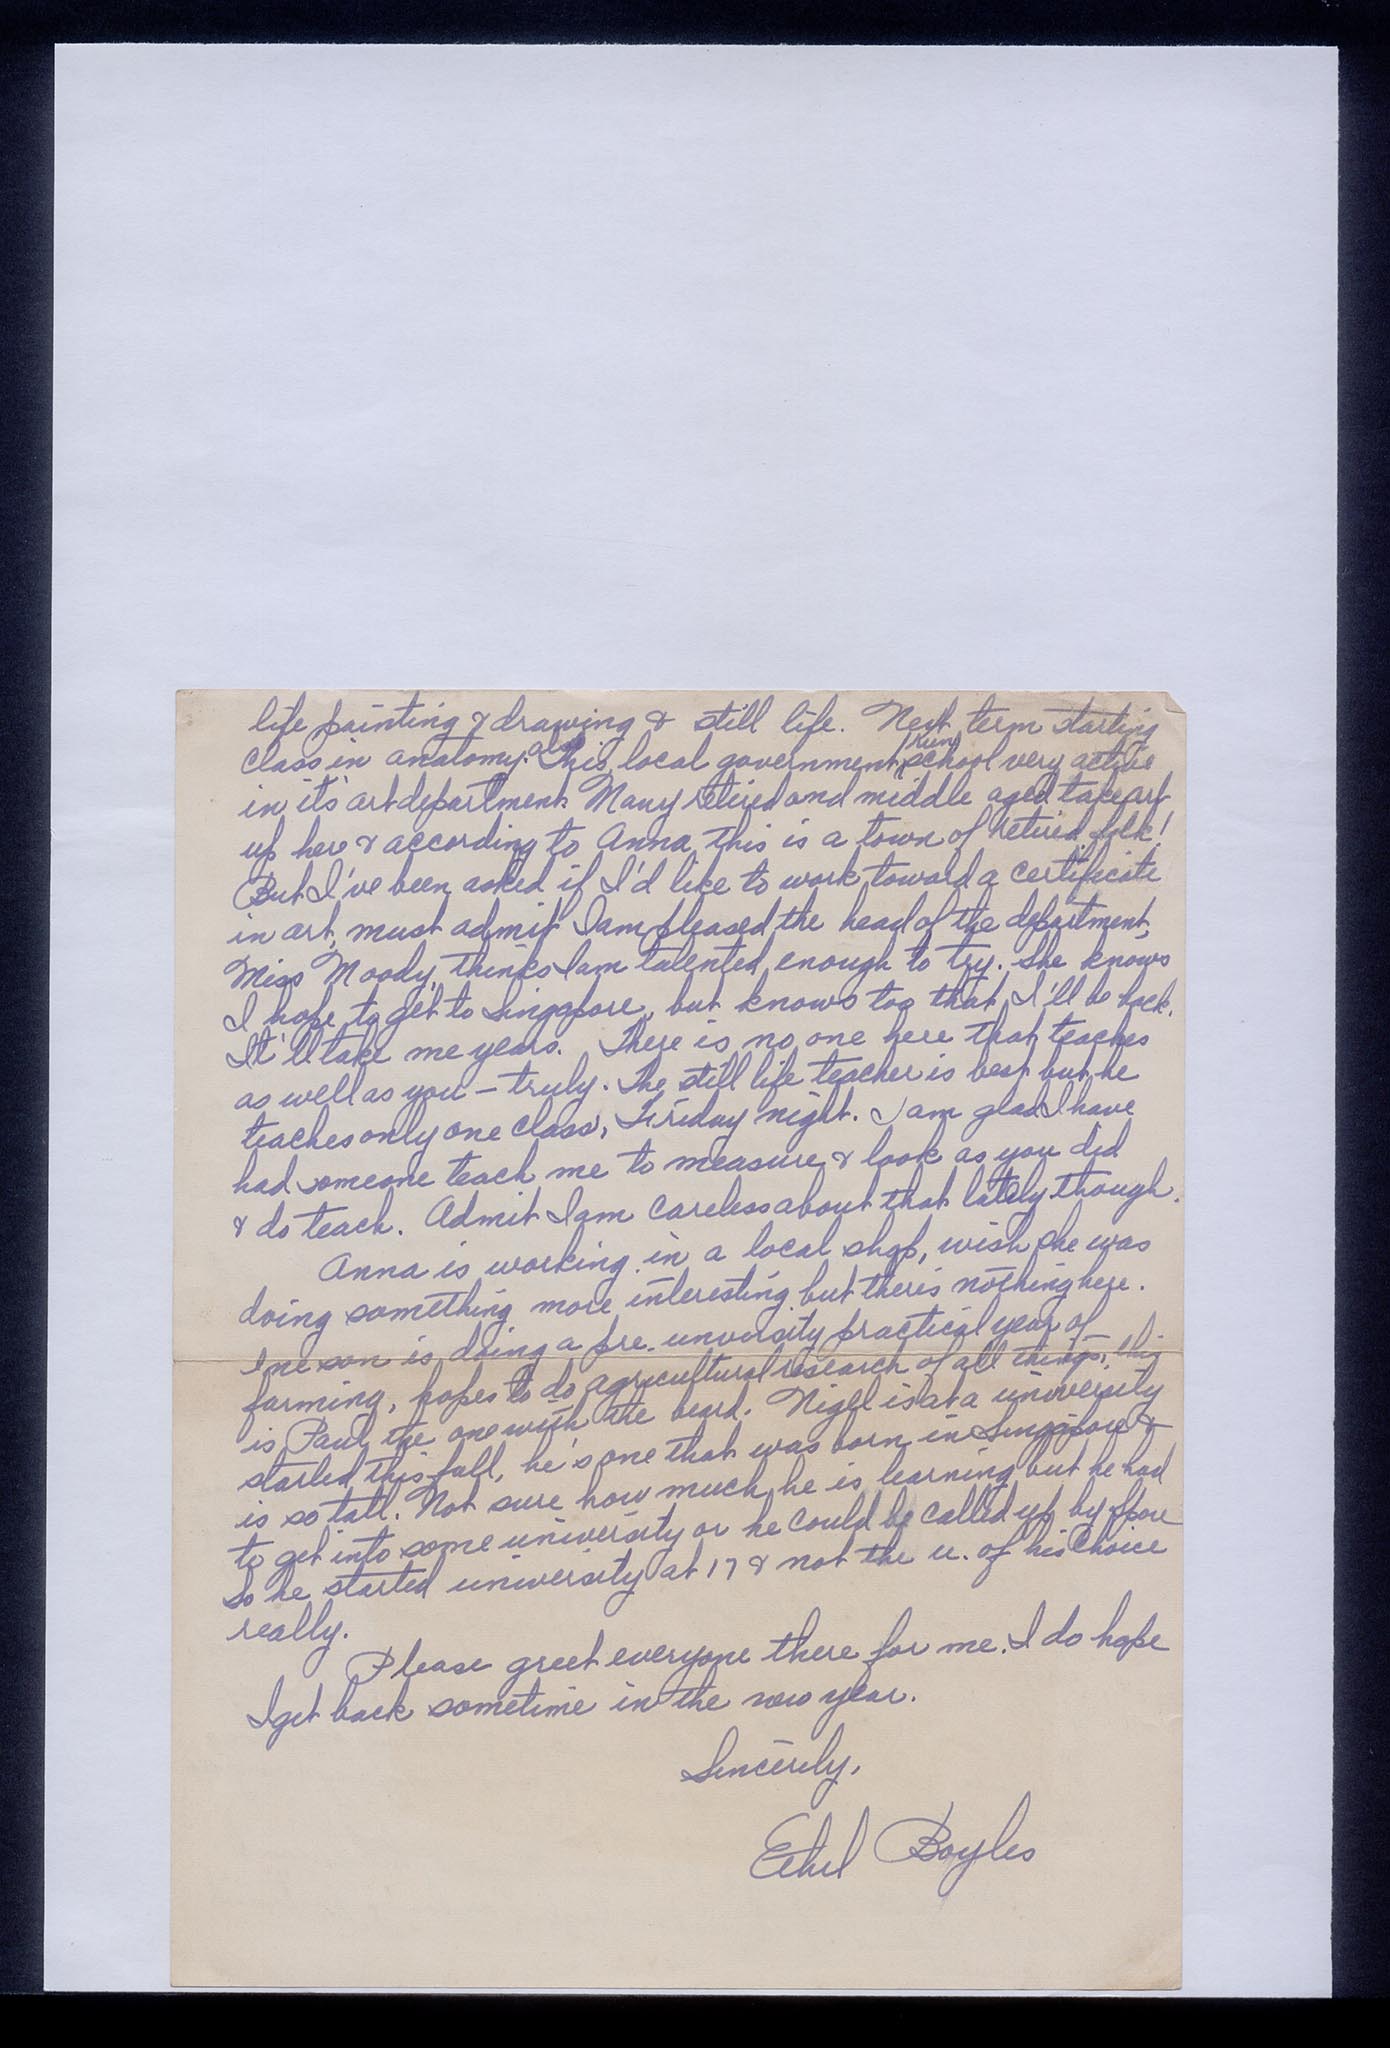 life painting & drawing & still life. Next term starting
class in anatomy also. This local government run school very active
in it's art department. Many retired and middle aged take art
up here & according to Anna, this is a town of retired folk!
But I've been asked if I'd like to work toward a certificate
in art, must admit I am pleased the head of the department,
Miss Moody, thinks I am talented enough to try. She knows
I hope to get to Singapore, but knows too that I'll be back.
It'll take me years. There is no one here that teaches
as well as you – truly. The still life teacher is best but he
teaches only one class, Friday night. I am glad I have
had someone teach me to measure & look as you did
& do teach. Admit I am careless about that lately though.
Anna is working in a local shop, wish she was
doing something more interesting but there's nothing here.
One son is doing a pre-university practical year of
farming, hopes to do agricultural research of all things, this
is Paul the one with the beard. Nigel is at a university
started this fall, he's one that was born in Singapore &
is so tall. Not sure how much he is learning but he had
to get into some university or he could be called up by Spore
so he started university at 17 & not the u. of his choice
really.
Please greet everyone there for me. I do hope
I get back sometime in the new year.
Sincerely,
Ethel Boyles